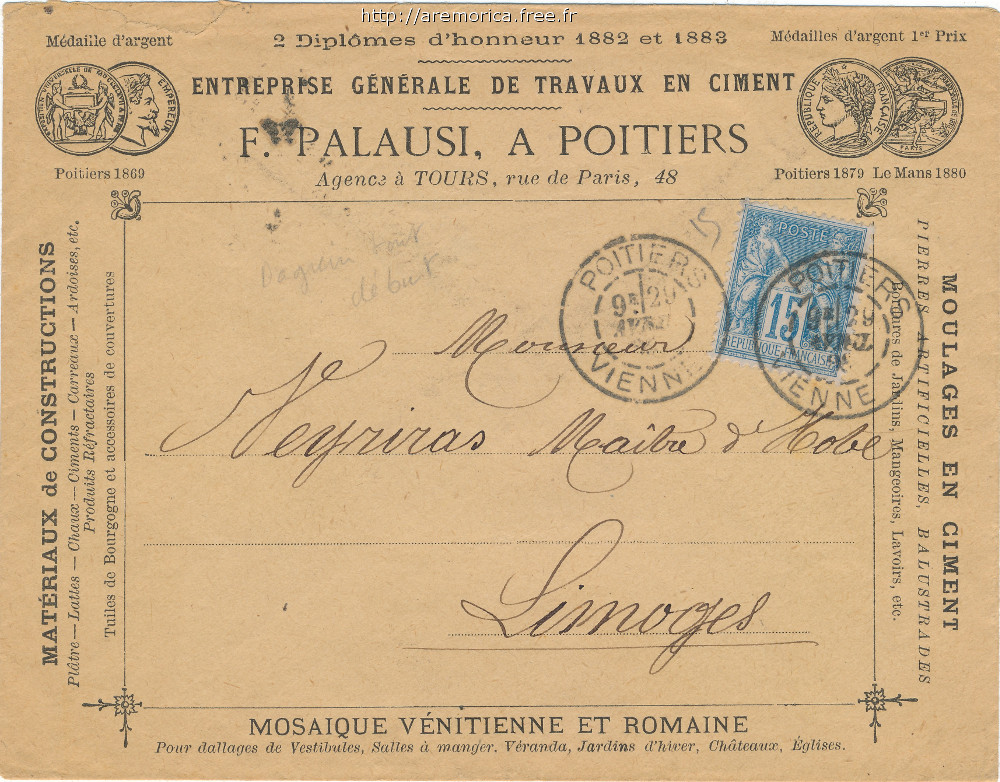 http://aremorica.free.fr
Médaille d'argent
2 Diplômes d'honneur 1882 et 1883
Médailles d'argent 1er Prix
ENTREPRISE GÉNÉRALE DE TRAVAUX EN CIMENT
EMPEREUR
RÉPUBLIQUE FRANÇAISE
PARIS
F. PALAUSI, A POITIERS
Poitiers 1869
Agence à TOURS, rue de Paris, 48
Poitiers 1879 Le Mans 1880
MATÉRIAUX de CONSTRUCTIONS
Plâtre—Lattes—Chaux—Ciments—Carreaux—Ardoises, etc.
Produits Réfractaires
Tuiles de Bourgogne et accessoires de couvertures
15
Daguin tout
début
POITIERS
29
VIENNE
POSTE
15
RÉPUBLIQUE FRANÇAISE
POITIERS
29
VIENNE
Monsieur
Neyriras Maître d'Hotel
Limoges
Bordures de Jardins, Mangeoires, Lavoirs, etc.
PIERRES ARTIFICIELLES, BALUSTRADES
MOULAGES EN CIMENT
MOSAIQUE VÉNITIENNE ET ROMAINE
Pour dallages de Vestibules, Salles à manger, Véranda, Jardins d'hiver, Châteaux, Églises.